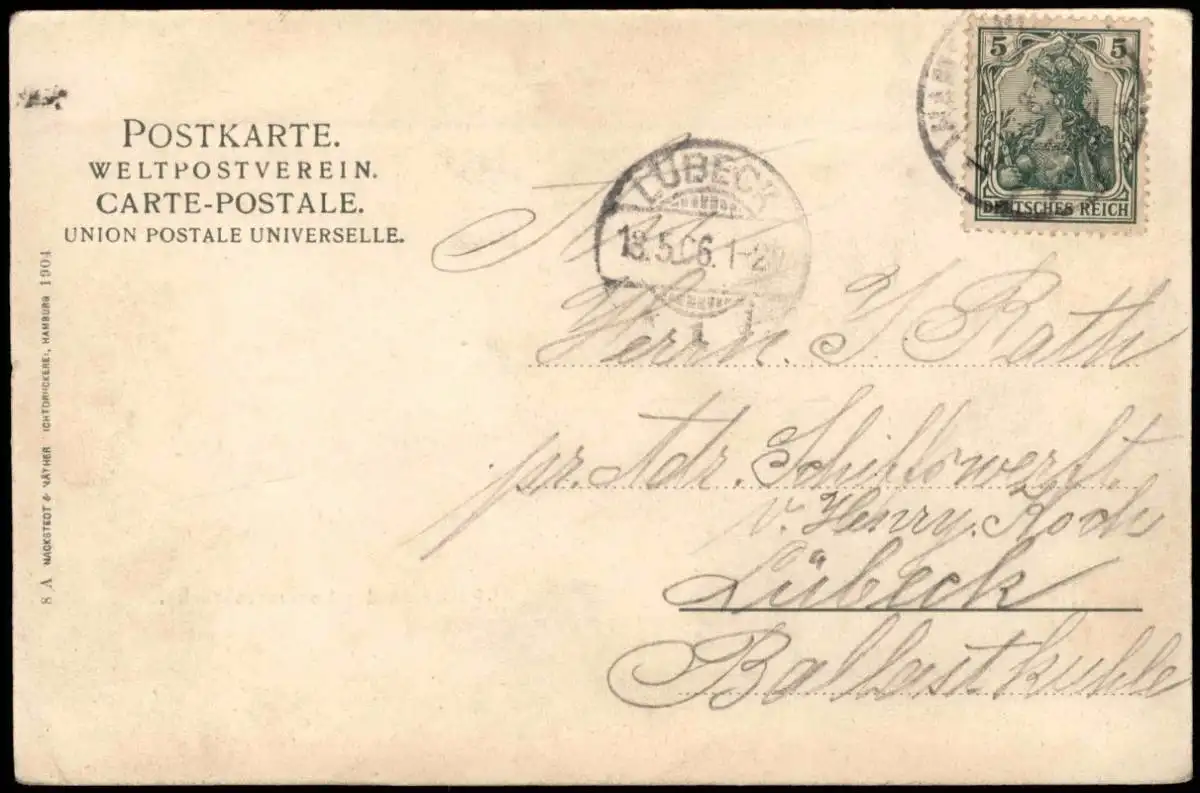 POSTKARTE.
WELTPOSTVEREIN.
CARTE-POSTALE.
UNION POSTALE UNIVERSELLE.
5 5
DEUTSCHES REICH
LÜBECK
18.5.06. 1-2
1
Herrn. J. Rath
pr. Adr. Schiffswerft.
v. Henry. Koch
Lübeck
Ballastkuhle
8 A KNACKSTEDT & NÄTHER LICHTDRUCKEREI, HAMBURG 1904